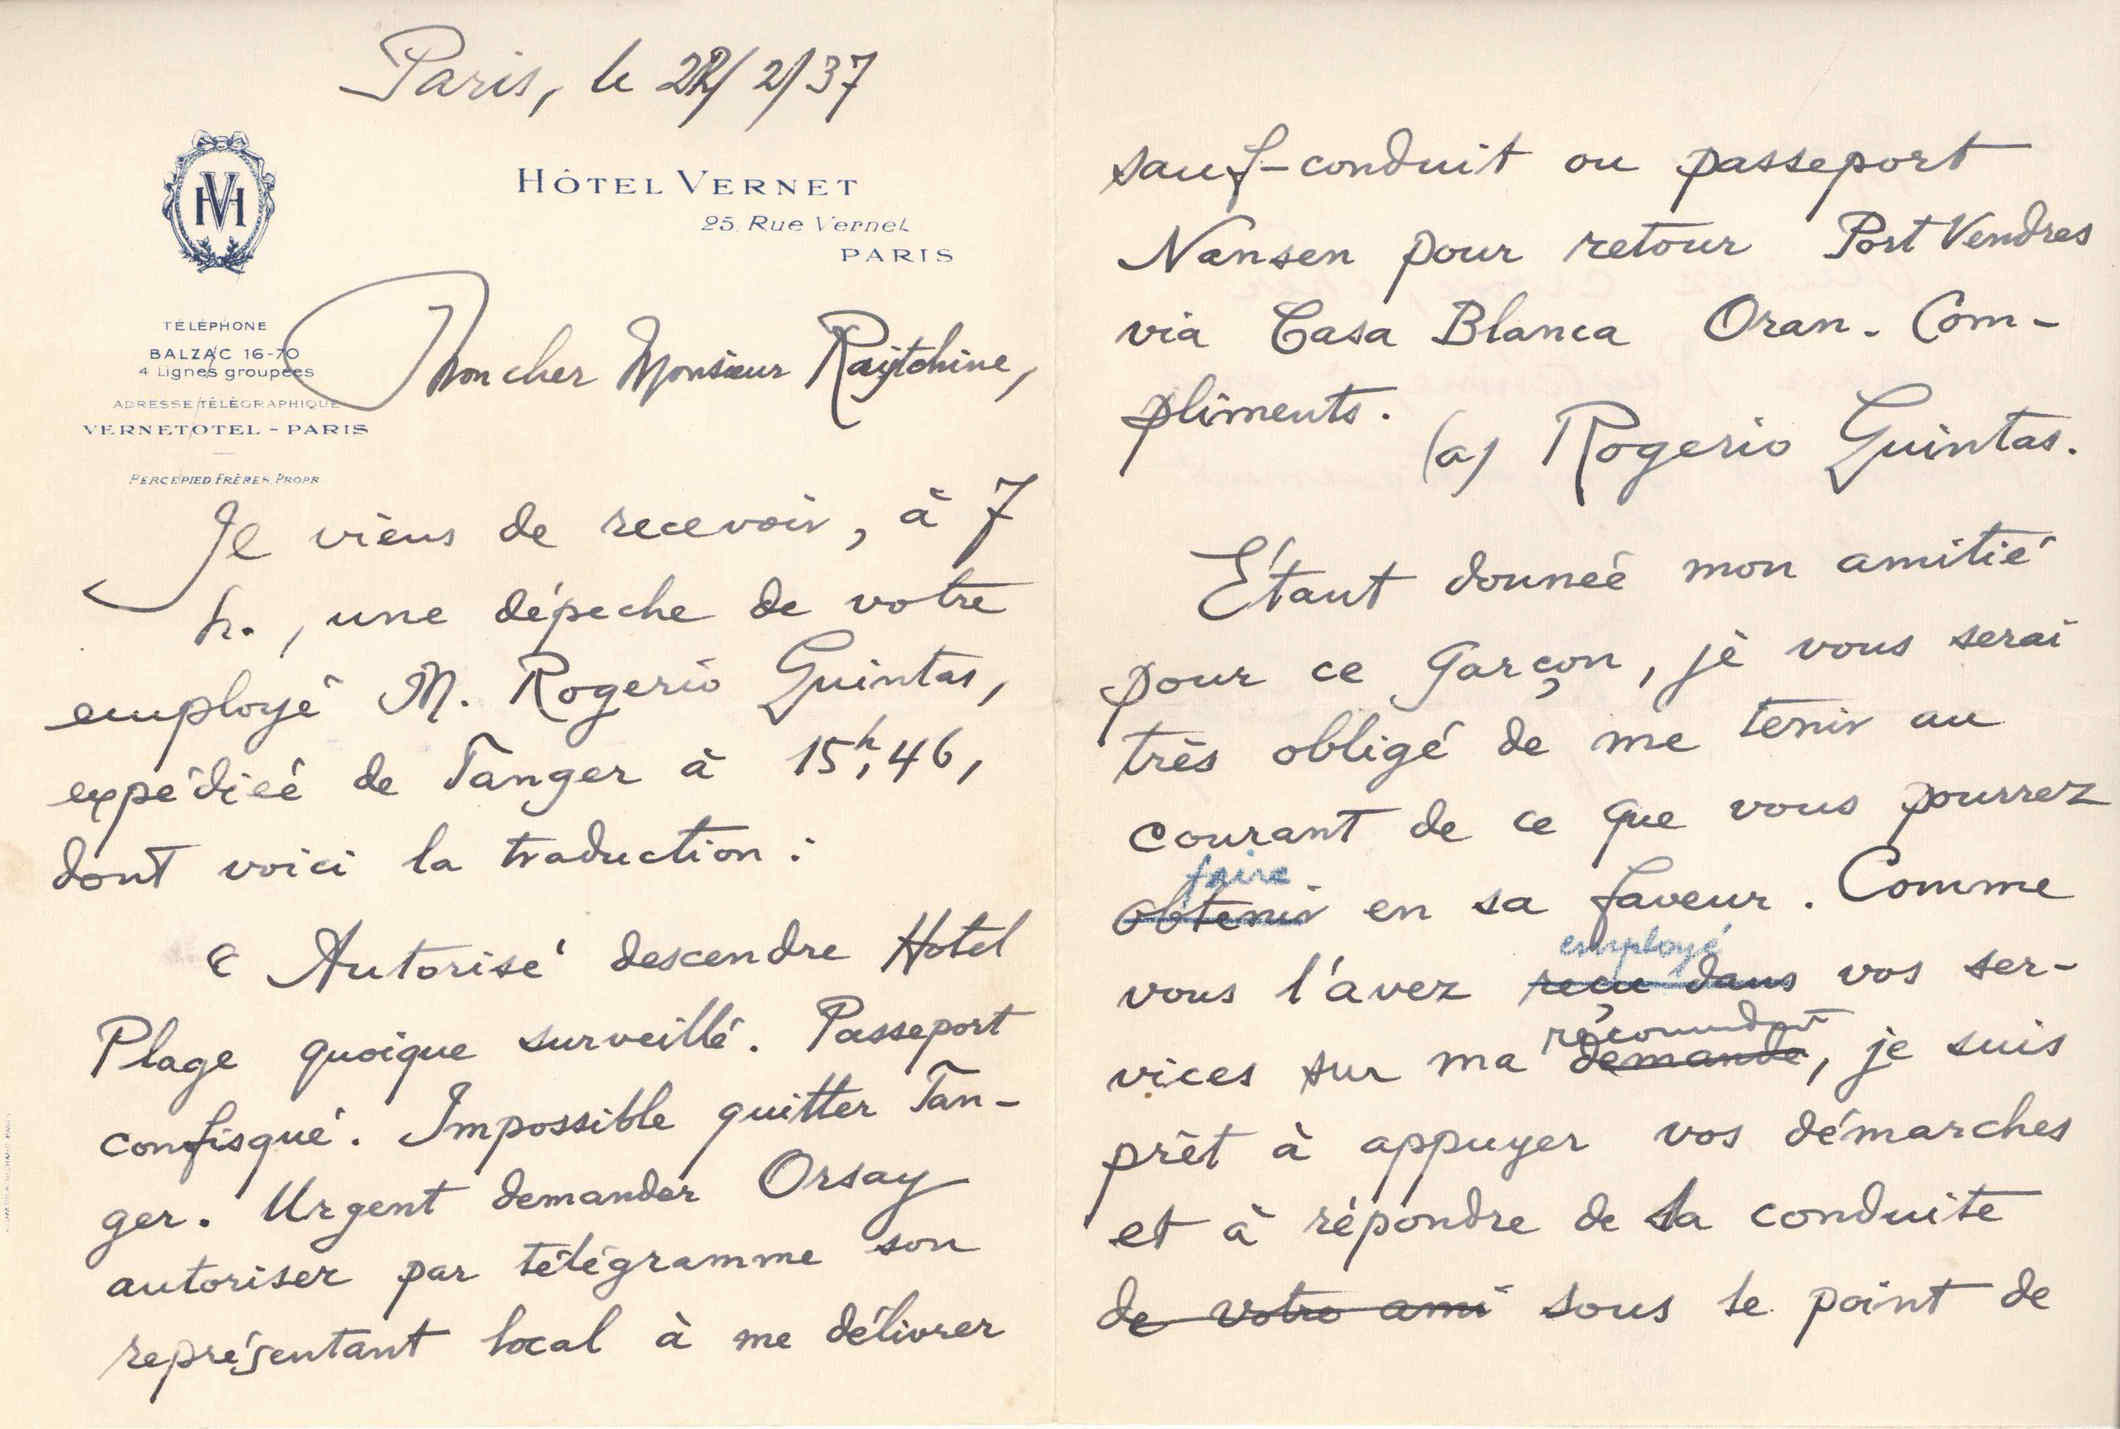 Paris, le 22/2/37
VH
HÔTEL VERNET
25, Rue Vernet
PARIS
TÉLÉPHONE
BALZAC 16-70
4 Lignes groupées
ADRESSE TÉLÉGRAPHIQUE
VERNETOTEL - PARIS
PERCEPIED FRÈRES, PROPR
Mon cher Monsieur Raÿtchine,
Je viens de recevoir, à 7
h., une dépeche de votre
employé M. Rogerio Guintas,
expédieé de Tanger à 15h,46,
dont voici la traduction :
« Autorisé descendre Hotel
Plage quoique surveillé. Passeport
confisqué. Impossible quitter Tan-
ger. Urgent demander Orsay
autoriser par télégramme son
représentant local à me délivrer
sauf-conduit ou passeport
Nansen pour retour Port Vendres
via Casa Blanca Oran. Com-
pliments.
(a) Rogerio Guintas.
Étant donneé mon amitié
pour ce garçon, je vous serai
très obligé de me tenir au
courant de ce que vous pourrez
faire
obtenir en sa faveur. Comme
employé
vous l'avez reçu dans vos ser-
vices sur ma demande, je suis
prêt à appuyer vos démarches
et à répondre de sa conduite
de votre ami sous le point de